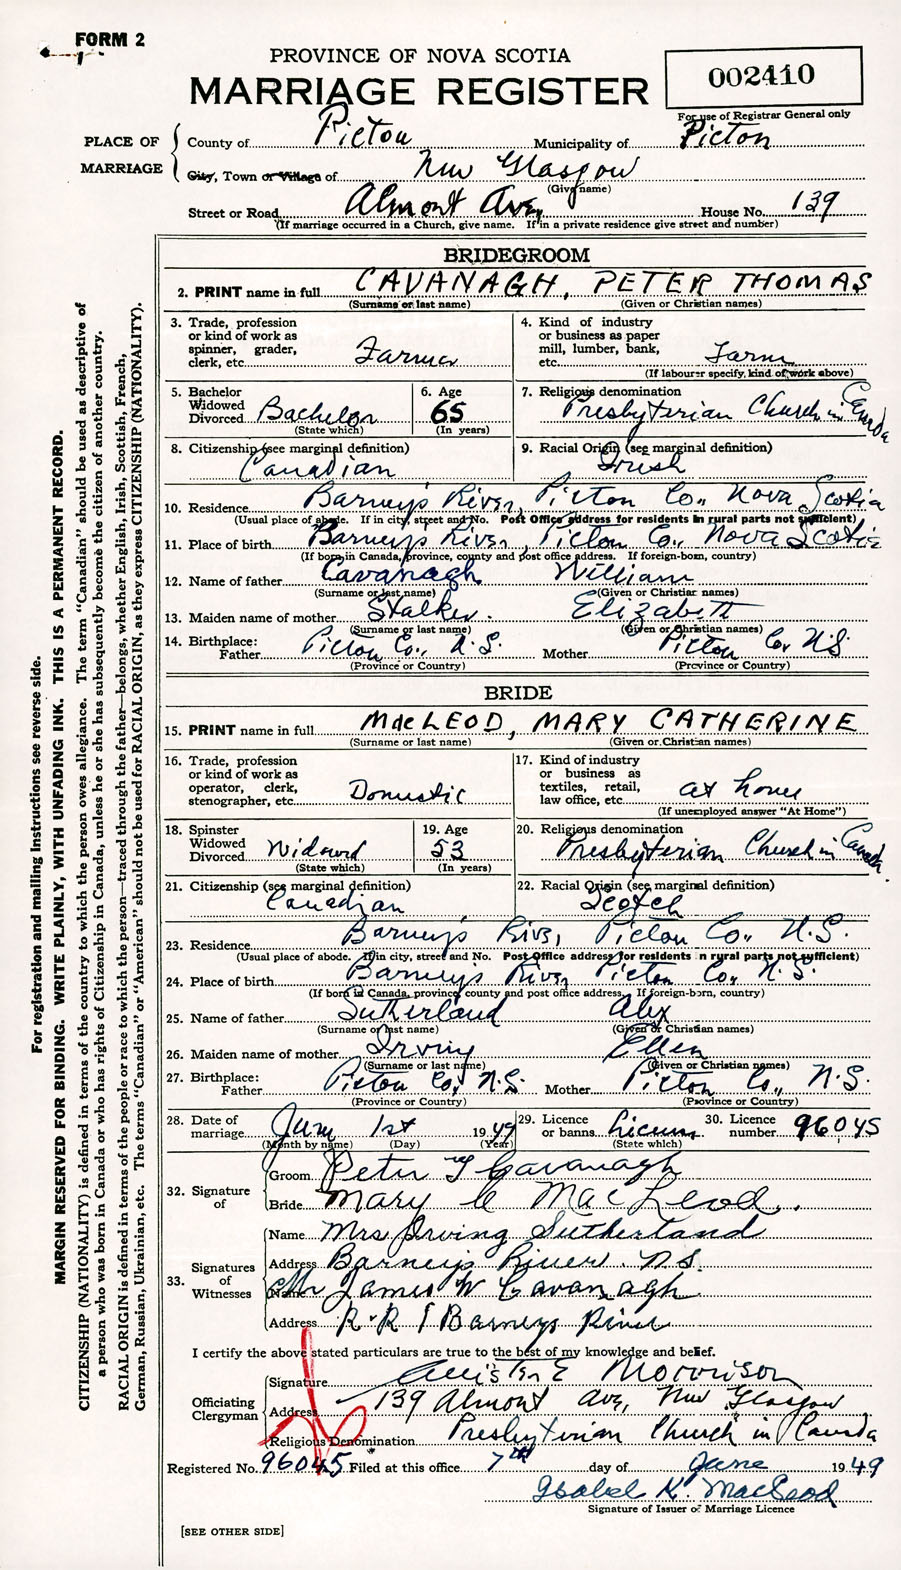 FORM 2
PROVINCE OF NOVA SCOTIA
MARRIAGE REGISTER
002410
For use of Registrar General only
PLACE OF MARRIAGE
County of Pictou Municipality of Pictou
City, Town or Village of New Glasgow
(Give name)
Street or Road Almont Ave, House No. 139
(If marriage occurred in a Church, give name. If in a private residence give street and number)
BRIDEGROOM
2. PRINT name in full CAVANAGH, PETER THOMAS
(Surname or last name) (Given or Christian names)
3. Trade, profession or kind of work as spinner, grader, clerk, etc. Farmer
4. Kind of industry or business as paper mill, lumber, bank, etc. Farm
(If labourer specify, kind of work above)
5. Bachelor Widowed Divorced Bachelor
(State which)
6. Age 65
(In years)
7. Religious denomination Presbyterian Church in Canada
8. Citizenship (see marginal definition) Canadian
9. Racial Origin (see marginal definition) Irish
10. Residence Barney's River, Pictou Co., Nova Scotia
(Usual place of abode. If in city, street and No. Post Office address for residents in rural parts not sufficient)
11. Place of birth Barney's River, Pictou Co., Nova Scotia
(If born in Canada, province, county and post office address. If foreign-born, country)
12. Name of father Cavanagh William
(Surname or last name) (Given or Christian names)
13. Maiden name of mother Stalker. Elizabeth
(Surname or last name) (Given or Christian names)
14. Birthplace: Father Pictou Co., N.S. Mother Pictou Co. N.S.
(Province or Country) (Province or Country)
BRIDE
15. PRINT name in full MacLEOD, MARY CATHERINE
(Surname or last name) (Given or Christian names)
16. Trade, profession or kind of work as operator, clerk, stenographer, etc. Domestic
17. Kind of industry or business as textiles, retail, law office, etc. at home
(If unemployed answer "At Home")
18. Spinster Widowed Divorced Widowed
(State which)
19. Age 53
(In years)
20. Religious denomination Presbyterian Church in Canada.
21. Citizenship (see marginal definition) Canadian
22. Racial Origin (see marginal definition) Scotch
23. Residence Barney's River, Pictou Co., N.S.
(Usual place of abode. If in city, street and No. Post Office address for residents in rural parts not sufficient)
24. Place of birth Barney's River, Pictou Co., N.S.
(If born in Canada, province, county and post office address. If foreign-born, country)
25. Name of father Sutherland Alex
(Surname or last name) (Given or Christian names)
26. Maiden name of mother Irving Ellen
(Surname or last name) (Given or Christian names)
27. Birthplace: Father Pictou Co., N.S. Mother Pictou Co., N.S.
(Province or Country) (Province or Country)
28. Date of marriage June 1st 1949
(Month by name) (Day) (Year)
29. Licence or banns License,
(State which)
30. Licence number 96045
32. Signature of
Groom Peter T Cavanagh
Bride Mary C MacLeod.
33. Signatures of Witnesses
Name Mrs Irving Sutherland
Address Barneys River. N.S.
Name Mr James W Cavanagh
Address R.R 1 Barneys River
I certify the above stated particulars are true to the best of my knowledge and belief.
Officiating Clergyman
Signature E Morrison
Address 139 Almont Ave, New Glasgow
Religious Denomination Presbyterian Church in Canada
Registered No. 96045 Filed at this office 7th day of June 1949
Isabel K. MacLeod
Signature of Issuer of Marriage Licence
[SEE OTHER SIDE]
For registration and mailing instructions see reverse side.
MARGIN RESERVED FOR BINDING. WRITE PLAINLY, WITH UNFADING INK. THIS IS A PERMANENT RECORD.
CITIZENSHIP (NATIONALITY) is defined in terms of the country to which the person owes allegiance. The term "Canadian" should be used as descriptive of
a person who was born in Canada or who has rights of Citizenship in Canada, unless he or she has subsequently become the citizen of another country.
RACIAL ORIGIN is defined in terms of the people or race to which the person—traced through the father—belongs, whether English, Irish, Scottish, French,
German, Russian, Ukrainian, etc. The terms "Canadian" or "American" should not be used for RACIAL ORIGIN, as they express CITIZENSHIP (NATIONALITY).